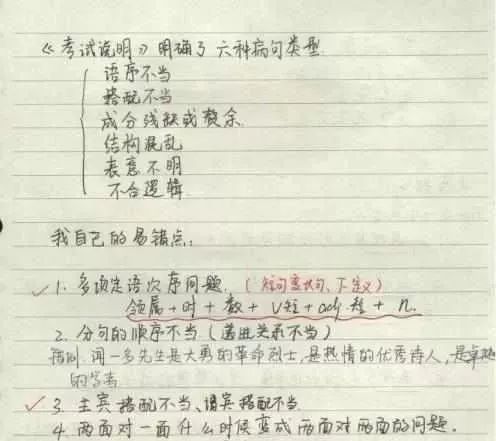 《考试说明》明确了六种病句类型
语序不当
搭配不当
成分残缺或赘余
结构混乱
表意不明
不合逻辑
我自己的易错点:
1. 多项定语次序问题.(短句变长句、下定义)
领属+时+数+V短+adj.短+n.
2. 分句的顺序不当(递进关系不当)
病例.闻一多先生是大勇的革命烈士,是热情的优秀诗人,是卓越
的学者
3. 主宾搭配不当、谓宾搭配不当
4. 两面对一面什么时候变成两面对两面的问题.